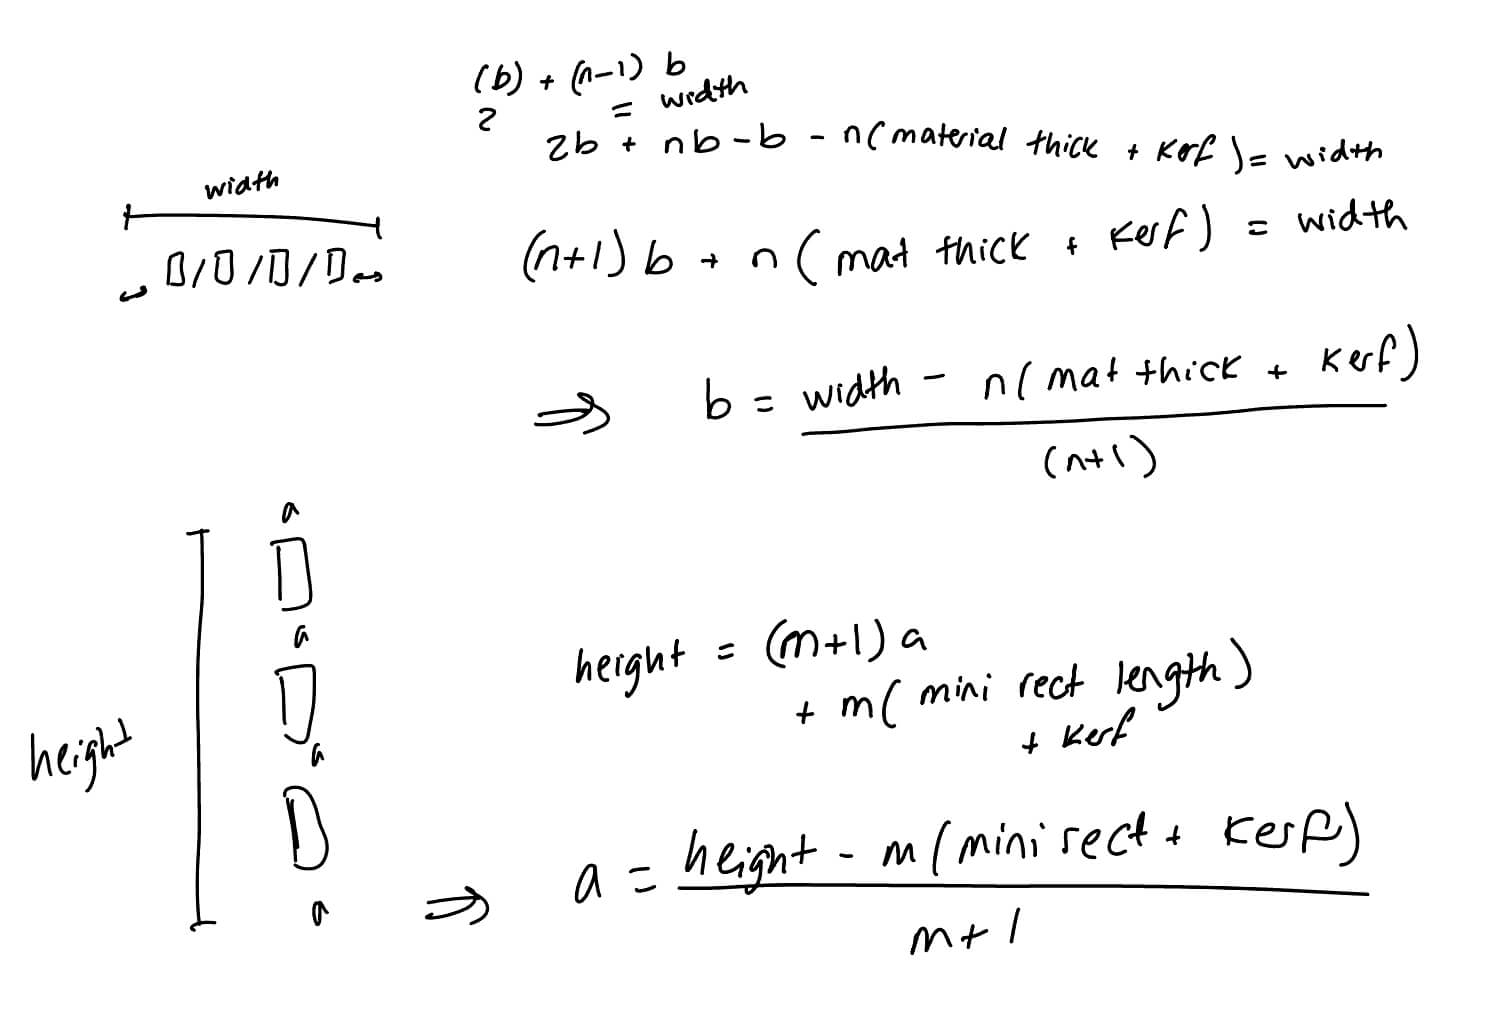 (b) + (n-1) b
2 = width
2b + nb - b - n( material thick + kerf ) = width
width
(n+1) b + n ( mat thick + kerf ) = width
⇒ b = width - n( mat thick + kerf )
(n+1)
a
a
height = (m+1) a
+ m( mini rect length )
+ kerf
a
height
a = height - m ( mini rect + kerf )
a ⇒
m+1